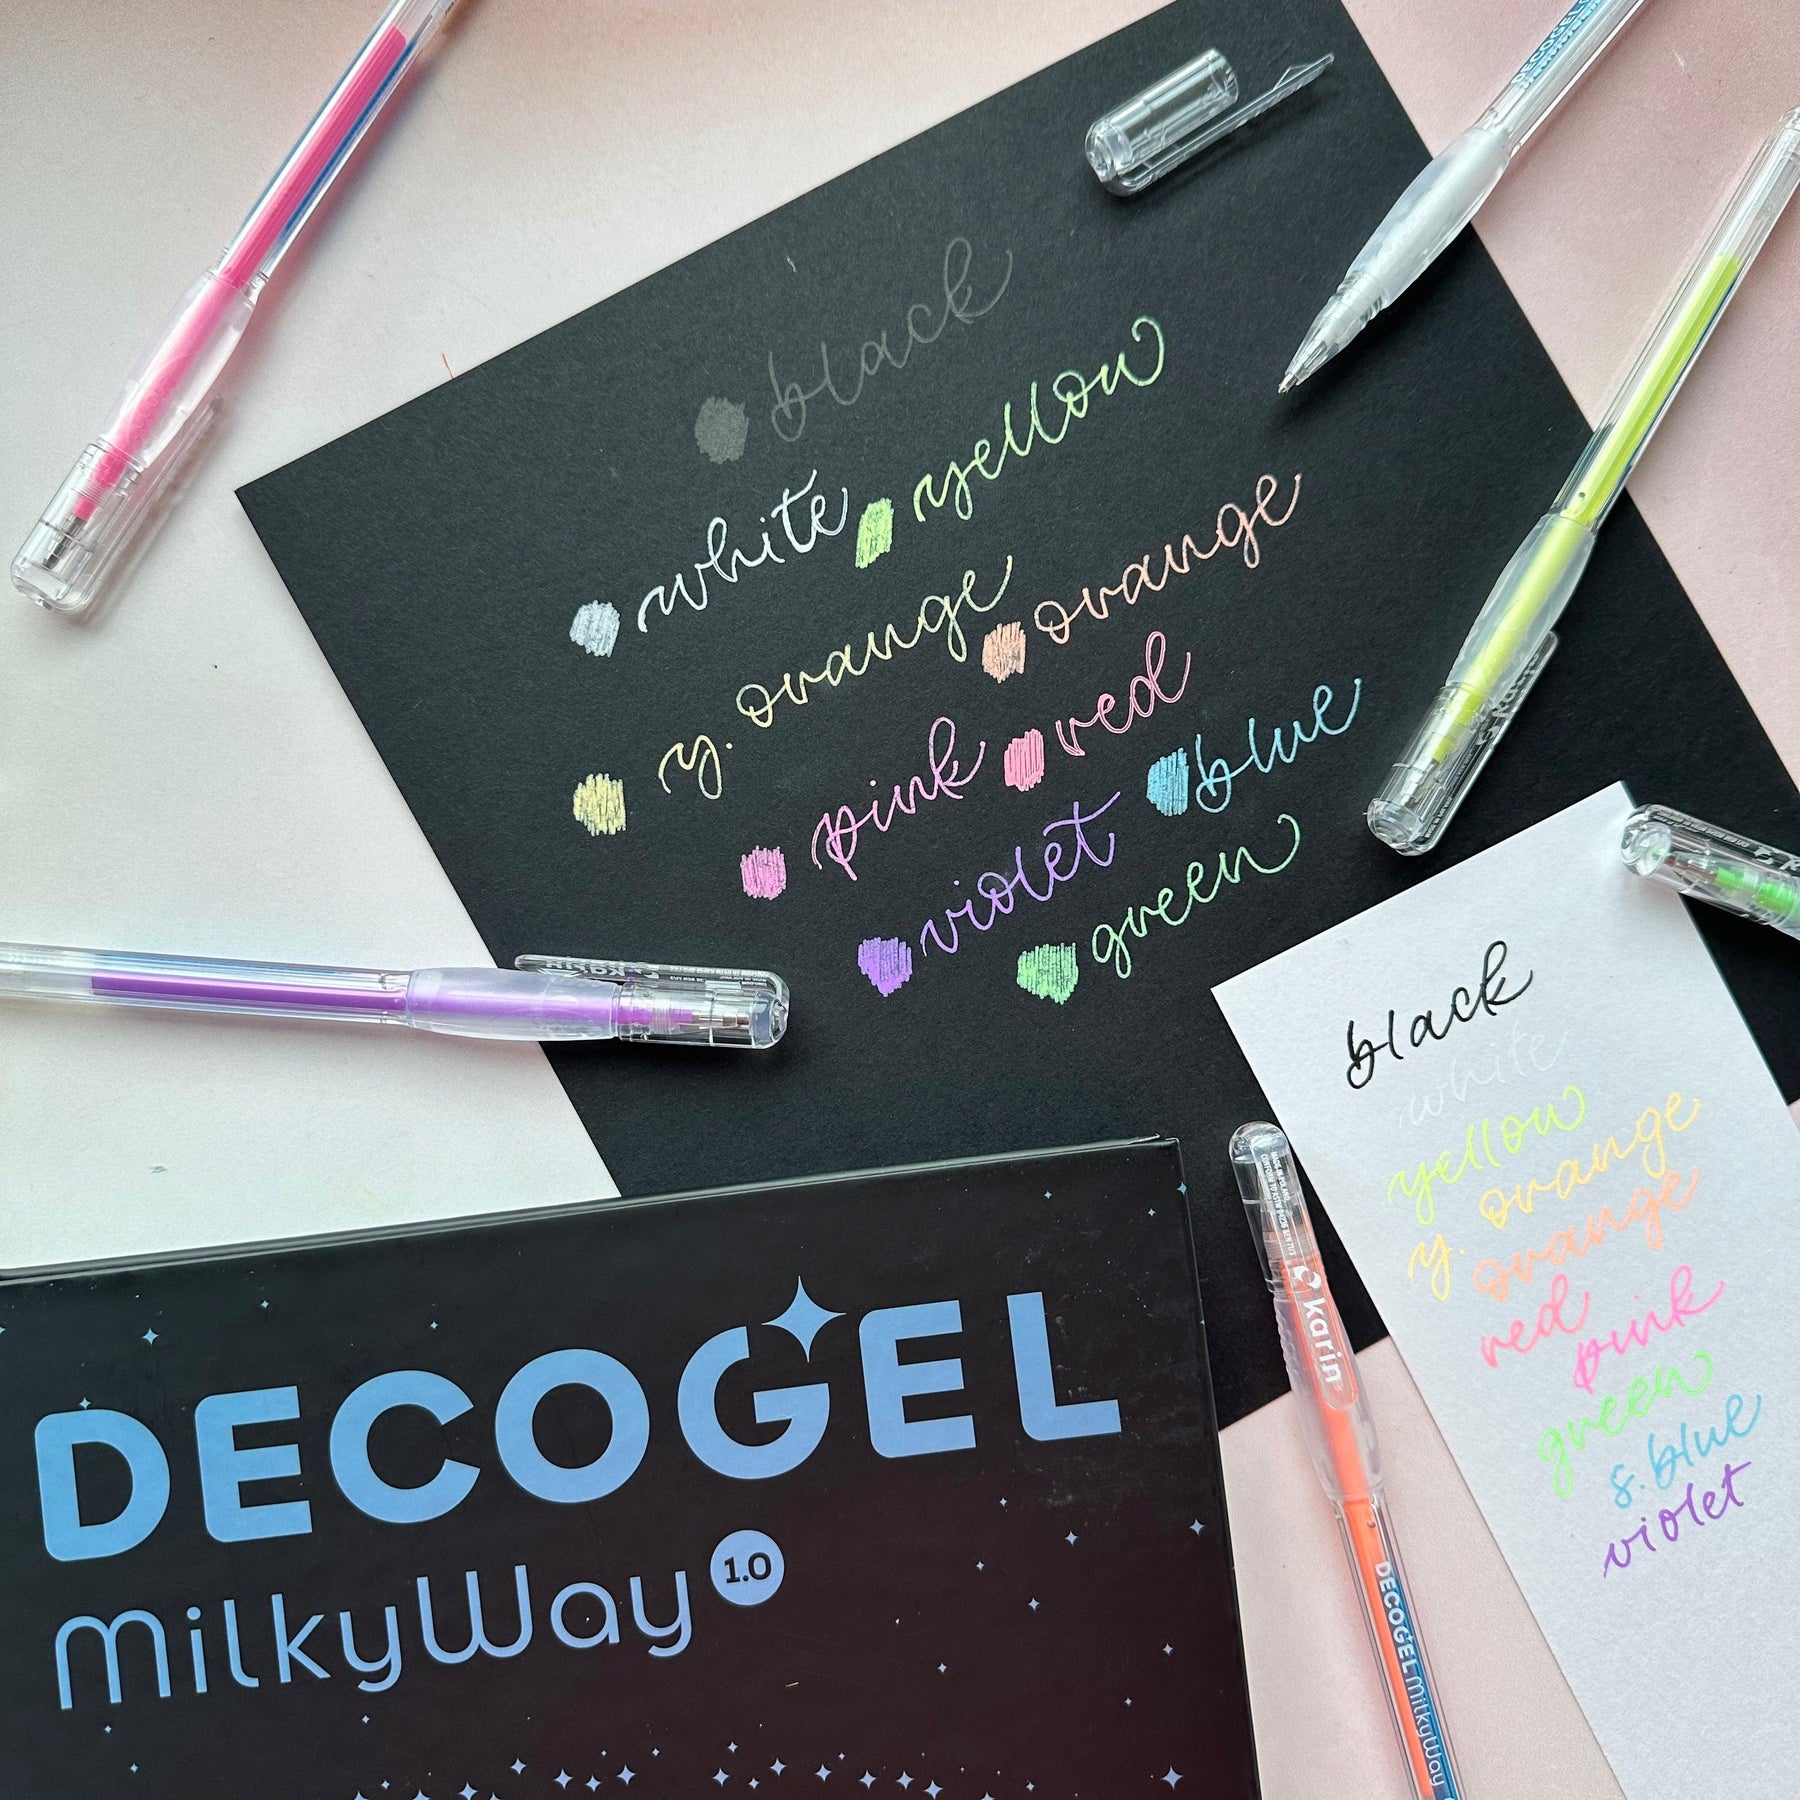 DECOGEL
black
white yellow
y. orange orange
pink red
violet blue
green
karin
black
white
yellow
y. orange
orange
red
pink
green
s. blue
violet
MADE IN POLAND.
karin
DECOGEL MilkyWay
DECOGEL
MilkyWay 1.0